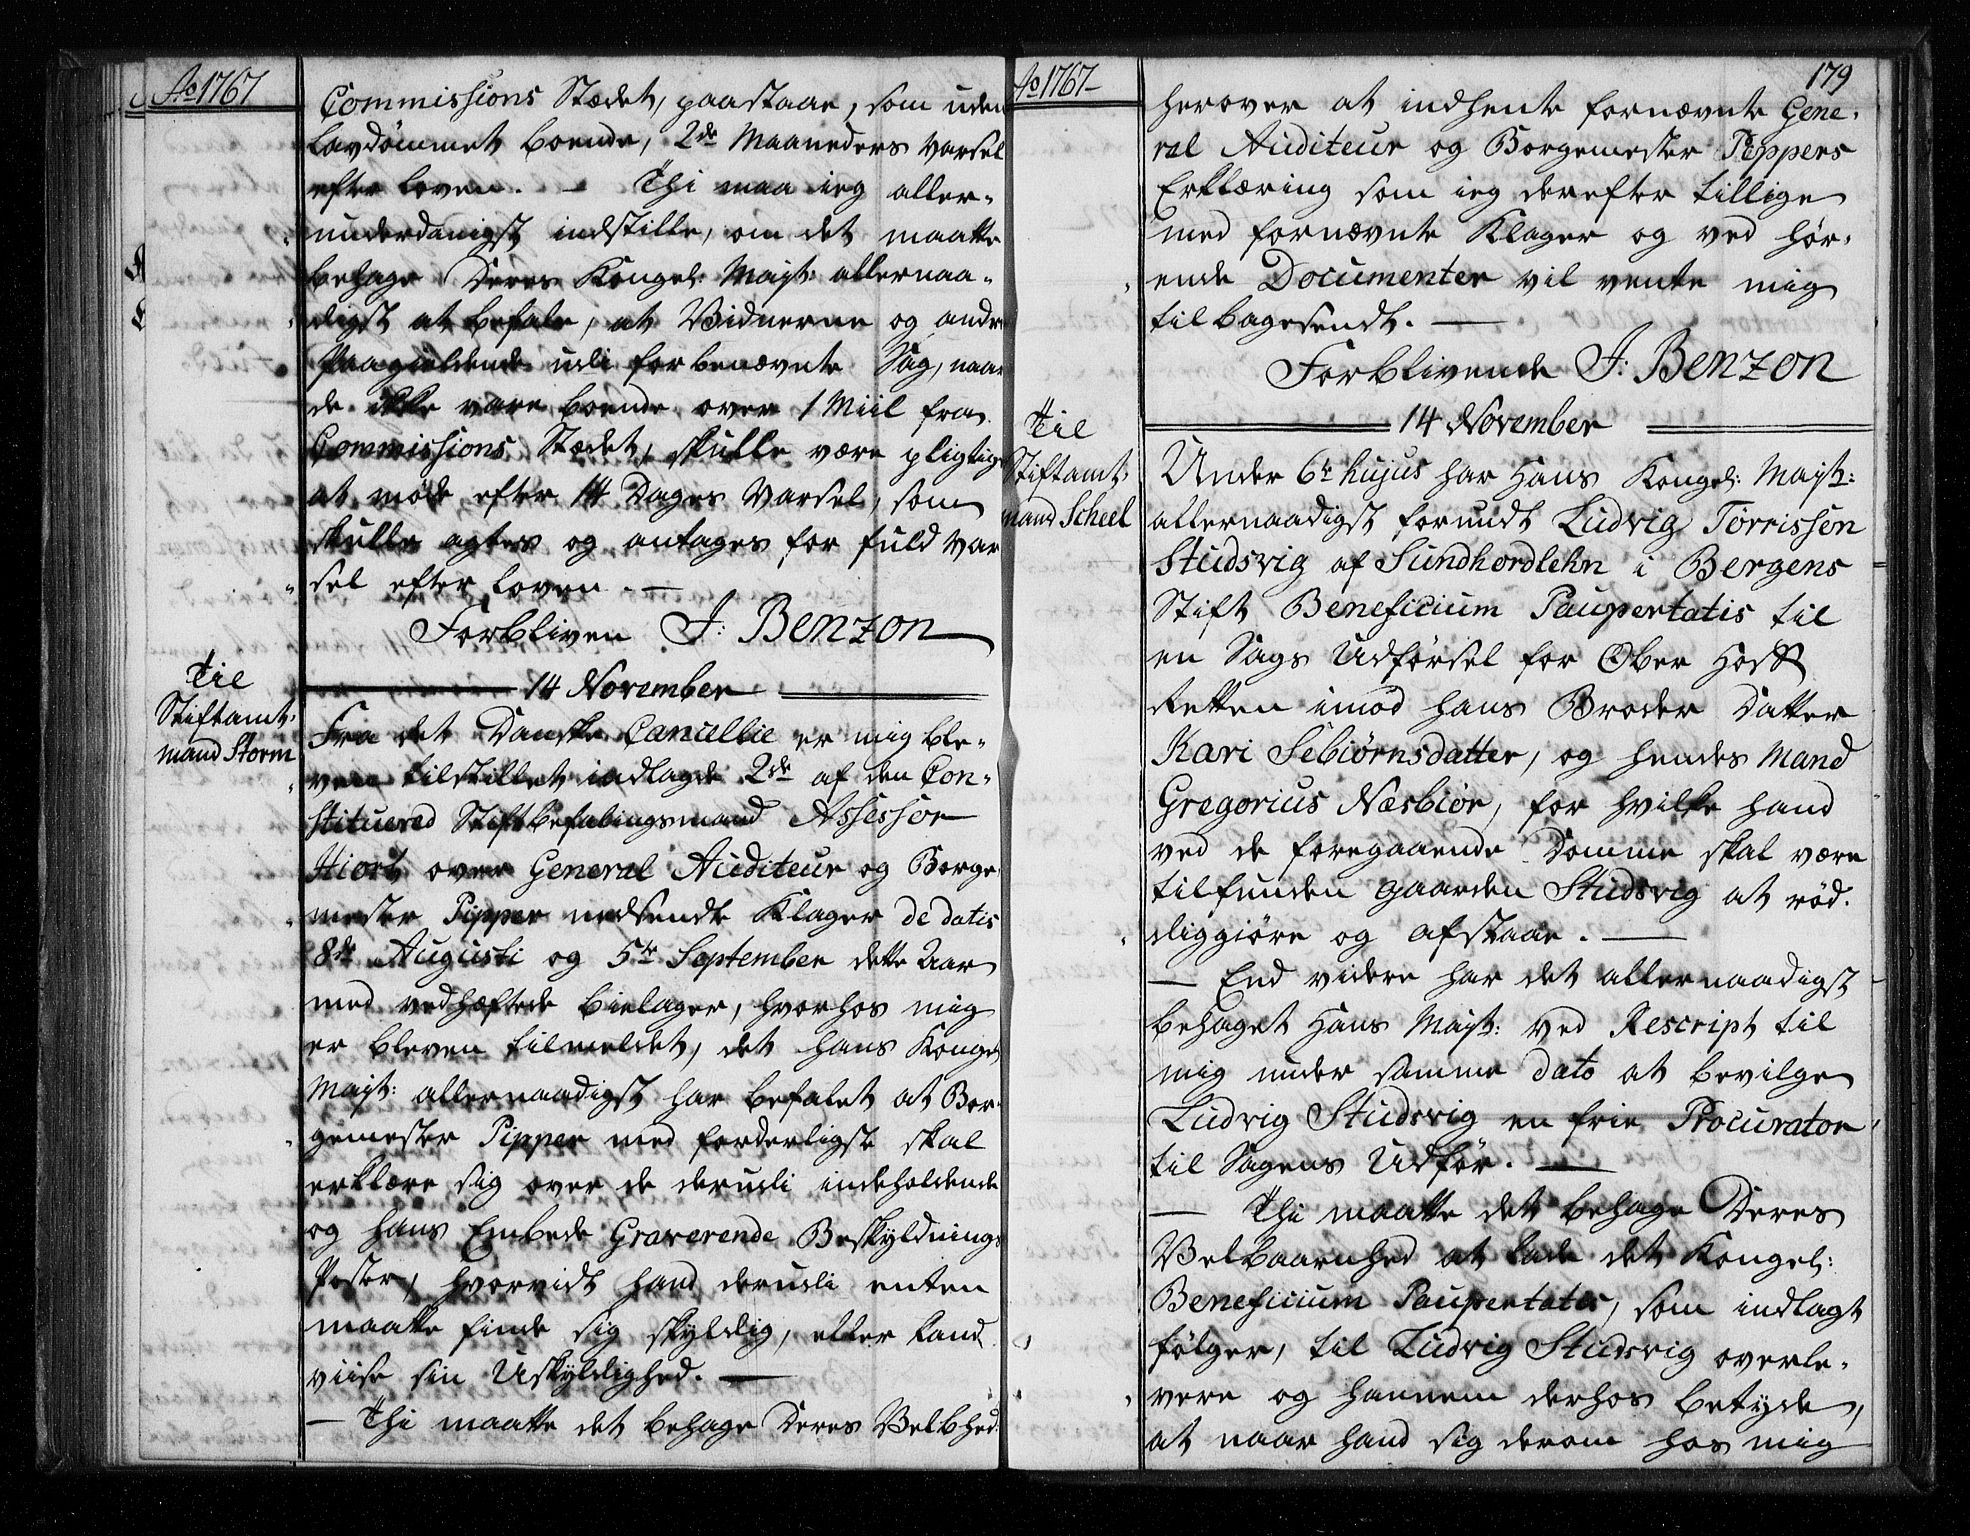 Ao 1767
Commissions Stædet, paastaae, som uden
Lavdømmet boende, 2de Maaneders Varsel
efter Loven. — Thi maa ieg aller-
underdanigst indstille, om det maatte
behage Deres Kongel: Mayt: allernaa-
digst at befale, at Vidnerne og andre
Paagieldende udi forbenævnte Sag, naar
de ikke vare boende over 1 Miil fra
Commissions Stædet, skulle være pligtige
at møde efter 14 Dages Varsel, som
skulle agtes og antages for fuld Var
sel efter Loven. —
Forbliven J: Benzon
14 November
Til
Stiftamt-
mand Storm
Fra det Danske Cancellie er mig ble-
ven tilstillet indlagde 2de af den Con-
stituered Stiftbefalingsmand Assessor
Hiort over General Auditeur og Borge-
mester Pipper nedsendte Klager de datis
8de Augusti og 5te September dette Aar
med vedhæftede bielager, hvorhos mig
er bleven tilmeldet, det Hans Kongel
Mayt: allernaadigst har befalet at Bor-
gemester Pipper med forderligst skal
erklære sig over de derudi indeholdende
og hans Embede Graverende Beskyldnings
Poster, hvorvidt hand derudi enten
maatte finde sig skyldig, eller kand
viise sin Uskyldighed. —
— Thi maatte det behage Deres Velbhed:
Ao 1767
179
herover at indhente fornævnte Gene-
ral Auditeur og Borgemester Pippers
Erklæring som ieg derefter tillige
med fornævnte Klager og ved hør-
ende Documenter vil vente mig
tilbagesendt. —
Forblivende J: Benzon
14 November
Til
Stiftamt-
mand Scheel
Under 6te hujus har Hans Kongel: Mayt:
allernaadigst forundt Ludvig Torrissen
Studsvig af Sundhordlehn i Bergens
Stift Beneficium Paupertatis til
en Sags Udførsel for Ober Hoff
Retten imod hans Broder Datter
Kari Sebiørnsdatter, og hendes Mand
Gregorius Næsbiør, for hvilke hand
ved de foregaaende Domme skal være
tilfunden Gaarden Studsvig at rød-
diggiøre og afstaae. —
— End videre har det allernaadigst
behaget Hans Mayt: ved Rescript til
mig under samme dato at bevilge
Ludvig Studsvig en frie Procurator
til Sagens Udfør. —
— Thi maatte det behage Deres
Velbaarnhed at lade det Kongel:
Beneficium Paupertatis, som indlagt
følger, til Ludvig Studsvig overle-
vere og hannem derhos betyde,
at naar hand sig derom hos mig